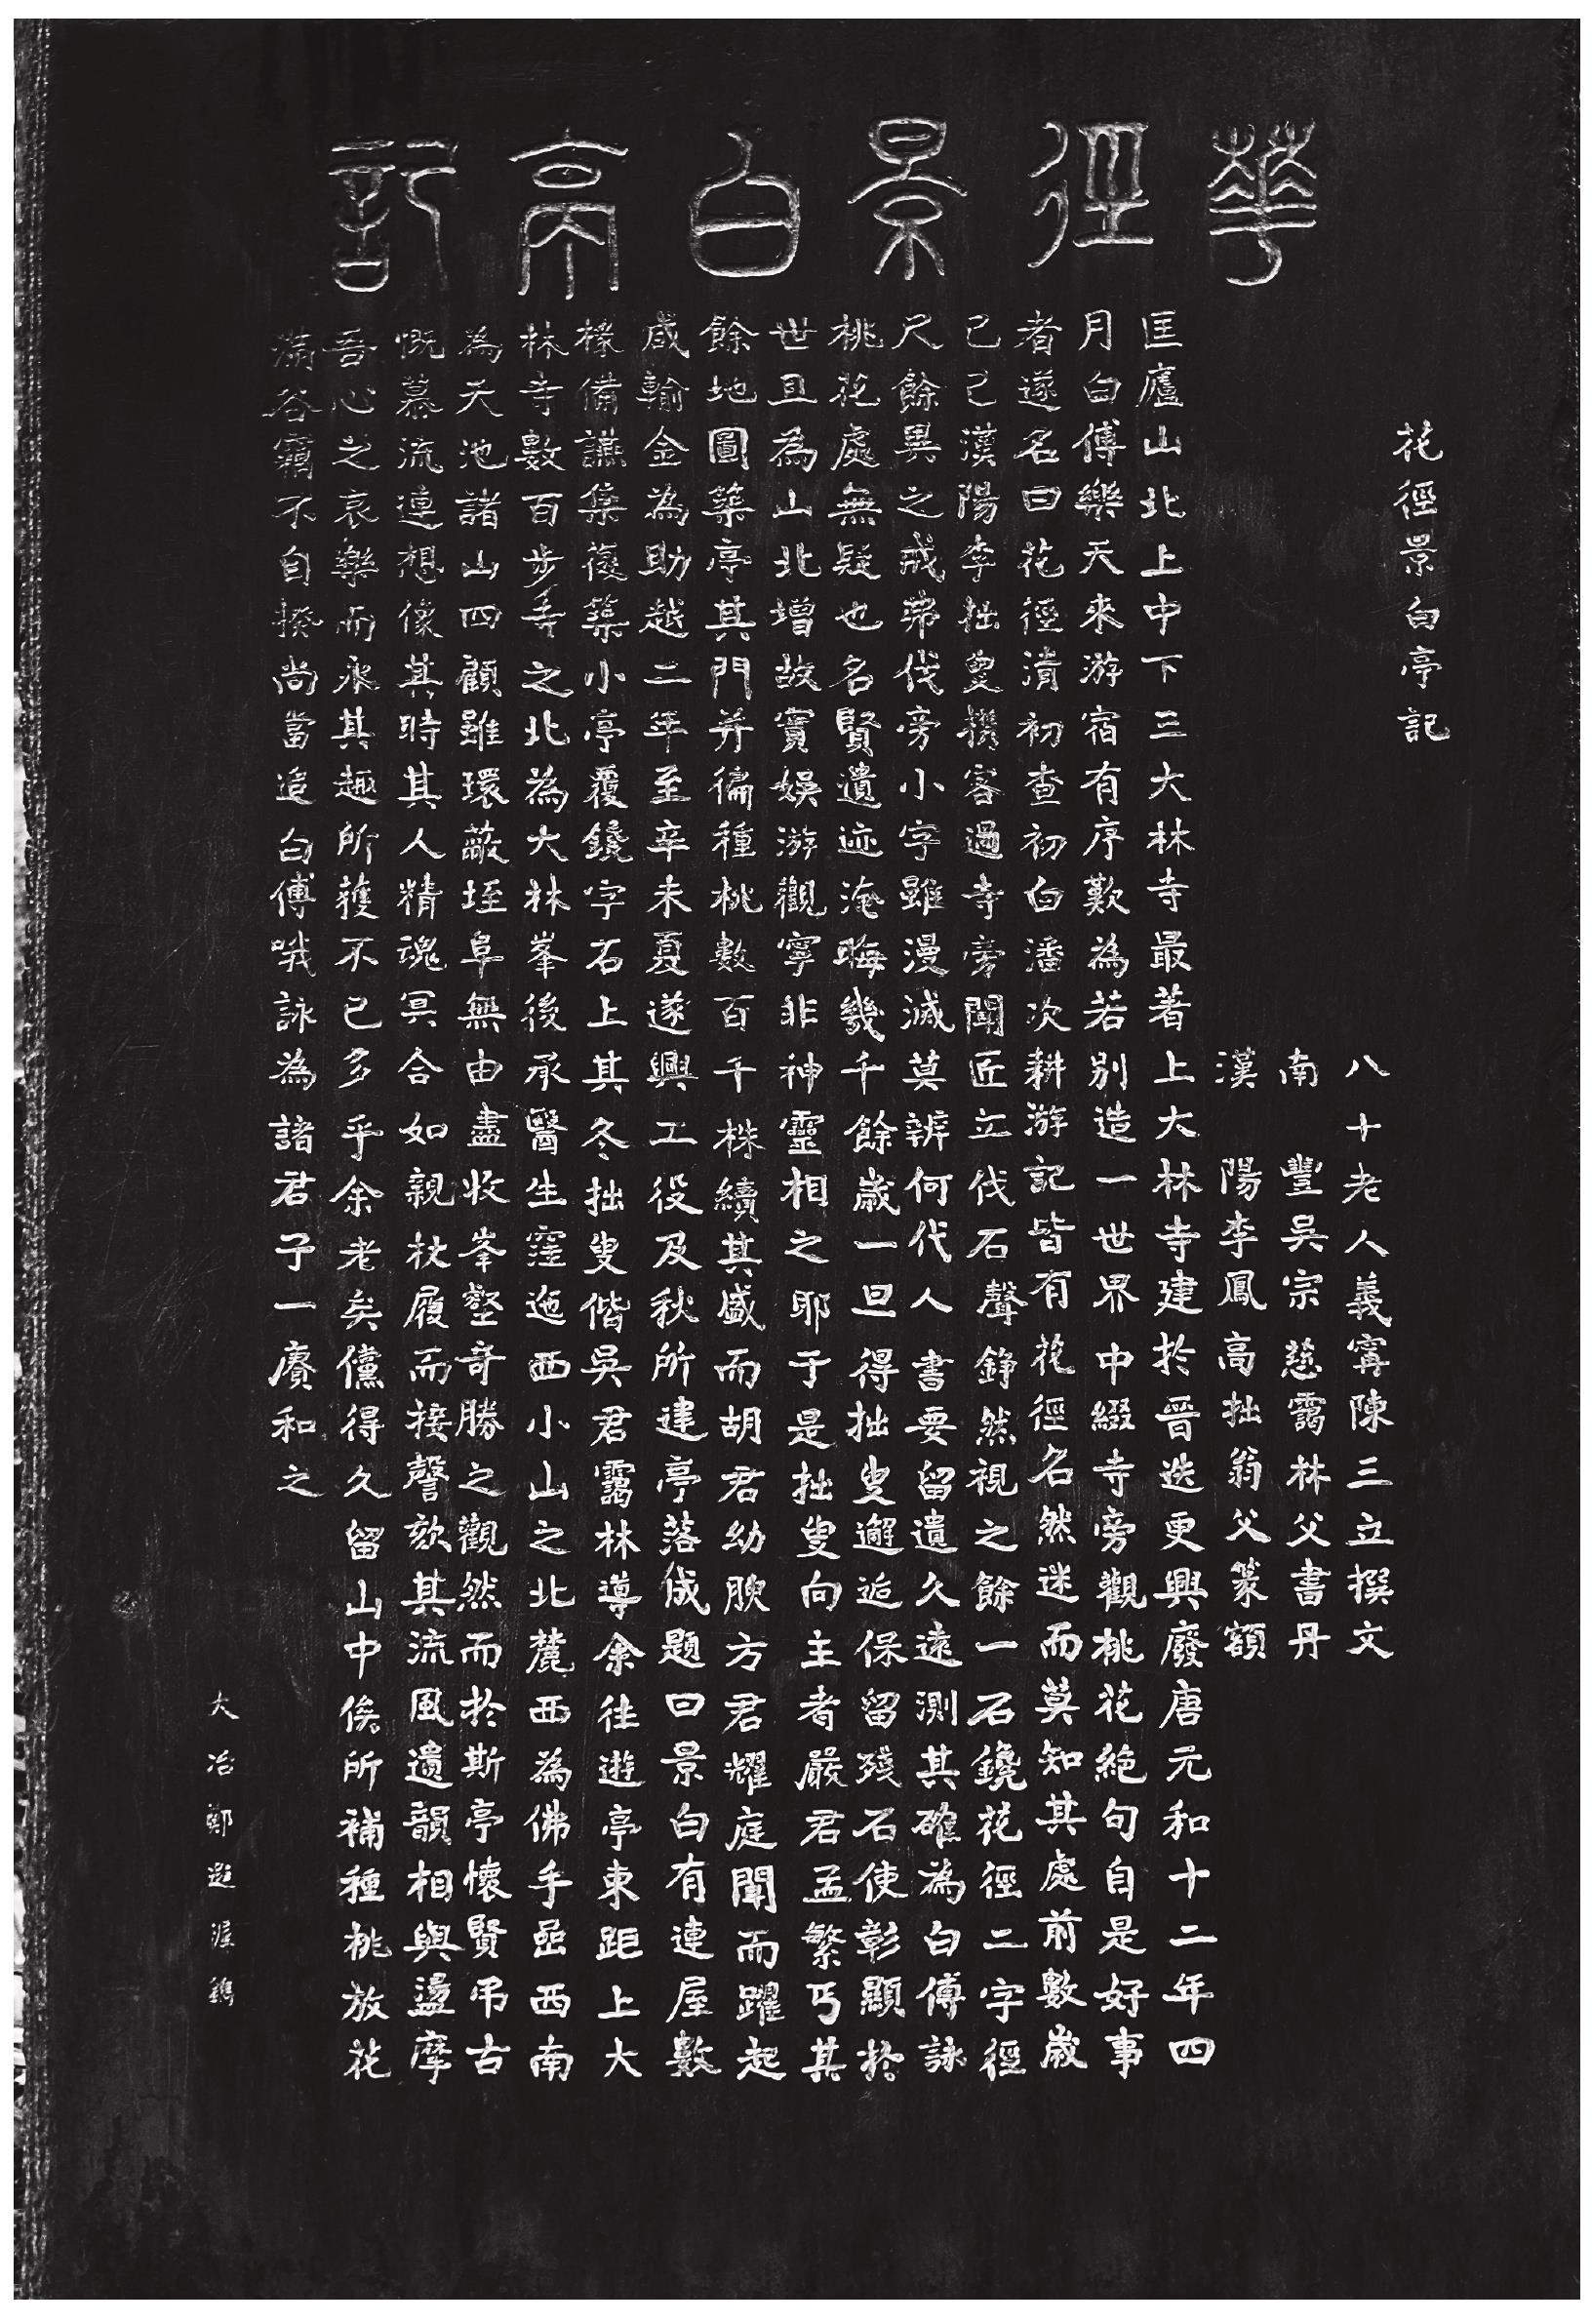 華徑景白亭記
花徑景白亭記
八十老人義寧陳三立撰文
南豐吳宗慈靄林父書丹
漢陽李鳳高拙翁父篆額
匡廬山北上中下三大林寺最著上大林寺建於晉迭更興廢唐元和十二年四
月白傅樂天來游宿有序歎為若別造一世界中綴寺旁觀桃花絕句自是好事
者遂名曰花徑清初查初白潘次耕游記皆有花徑名然迷而莫知其處前數歲
己巳漢陽李拙叟攜客過寺旁聞匠立伐石聲錚然視之餘一石鑱花徑二字徑
尺餘異之戒弗伐旁小字雖漫滅莫辨何代人書要留遺久遠測其確為白傅詠
桃花處無疑也名賢遺迹淹晦幾千餘歲一旦得拙叟邂逅保留殘石使彰顯於
世且為山北增故實娛游觀寧非神靈相之耶于是拙叟向主者嚴君孟繁丐其
餘地圖築亭其門并徧種桃數百千株續其盛而胡君幼腴方君耀庭聞而躍起
咸輸金為助越二年至辛未夏遂興工役及秋所建亭落成題曰景白有連屋數
椽備讌集復築小亭覆鑱字石上其冬拙叟偕吳君靄林導余往遊亭東距上大
林寺數百步寺之北為大林峯後承醫生窪迤西小山之北麓西為佛手喦西南
為天池諸山四顧雖環蔽垤阜無由盡收峯壑奇勝之觀然而於斯亭懷賢弔古
慨慕流連想像其時其人精魂冥合如親杖履而接謦欬其流風遺韻相與盪摩
吾心之哀樂而永其趣所獲不已多乎余老矣儻得久留山中俟所補種桃放花
滿谷竊不自揆尚當追白傅哦詠為諸君子一賡和之
大冶鄭遐滙鐫